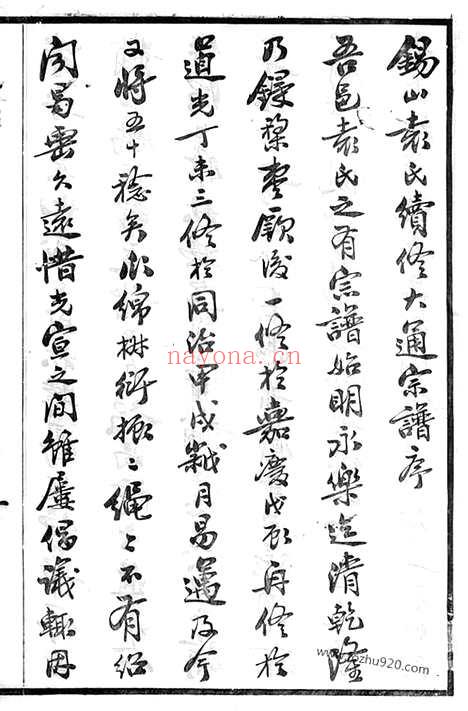 錫山袁氏續修大通宗譜序
吾邑袁氏之有宗譜始明永樂迄清乾隆
乃鋟棃棗厥後一修於嘉慶戊辰再修於
道光丁未三修於同治甲戌歲月易邁及今
又將五十稔矣瓜綿椒衍振〻繩〻不有紹
聞曷垂久遠惜光宣之間雖屢倡議輒因
nayona.cn
zhu920.com